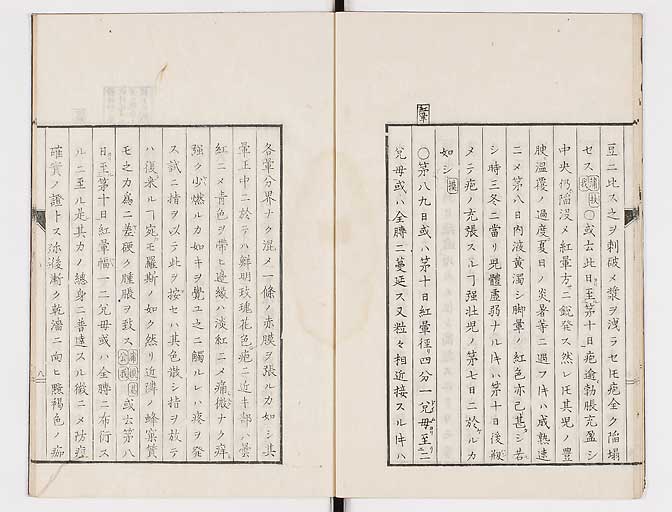 豆ニ比ス之ヲ刺破メ漿ヲ洩ラセ𪜈疱全ク陥塌
セス 〇或云此日至第十日疱逾勃脹充盈シ
中央仍陥没メ紅暈方ニ鋭発ス然レ𪜈其児ノ豊
腴温覆ノ過度夏日ノ炎暑等ニ遇フ𪜈ハ成熟速
ニメ第八日内液黄濁シ脚暈ノ紅色亦已甚シ若
シ時三冬ニ當リ児體虚弱ナル𪜈ハ第十日後
メテ疱ノ充張スルヿ強壮児ノ第七日ニ於ケルカ
如シ
紅暈
〇第八九日或ハ第十日紅暈径四分一兌母至二
兌母或ハ全膊ニ蔓延ス又粒々相近接スル𪜈ハ
各暈分界ナク混メ一條ノ赤膜ヲ張ルカ如シ其
暈正中ニ於テハ鮮明玫瑰花色疱ニ近キ部ハ曇
紅ニメ青色ヲ帯ヒ邊縁ハ淡紅ニメ痛微ナク痒
強ク少燃ルカ如キヲ覚ユ之ニ觸ルレハ疼ヲ発
ス試ニ指ヲ以テ此ヲ按セハ其色散シ指ヲ放テ
ハ復来ルヿ宛モ羅斯ノ如ク然リ近隣ノ蜂窠質
モ之カ為ニ差硬ク腫脹ヲ致ス 或云第八
日至第十日紅暈幅一二兌母或ハ全膊ニ布衍ス
ルニ至ル是其カノ總身ニ普達スル徴ニメ防痘
確實ノ證トス弥後漸ク乾瀋ニ向ヒ黯褐色ノ痂
八